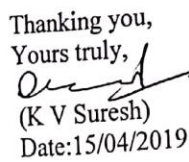 Thanking you,
Yours truly,
(K V Suresh)
Date:15/04/2019